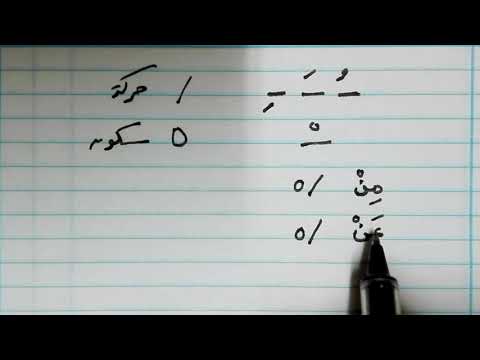 ـُ ـَ ـِ / حركة
ـْ 0 سكون
مِنْ /0
عَنْ /0